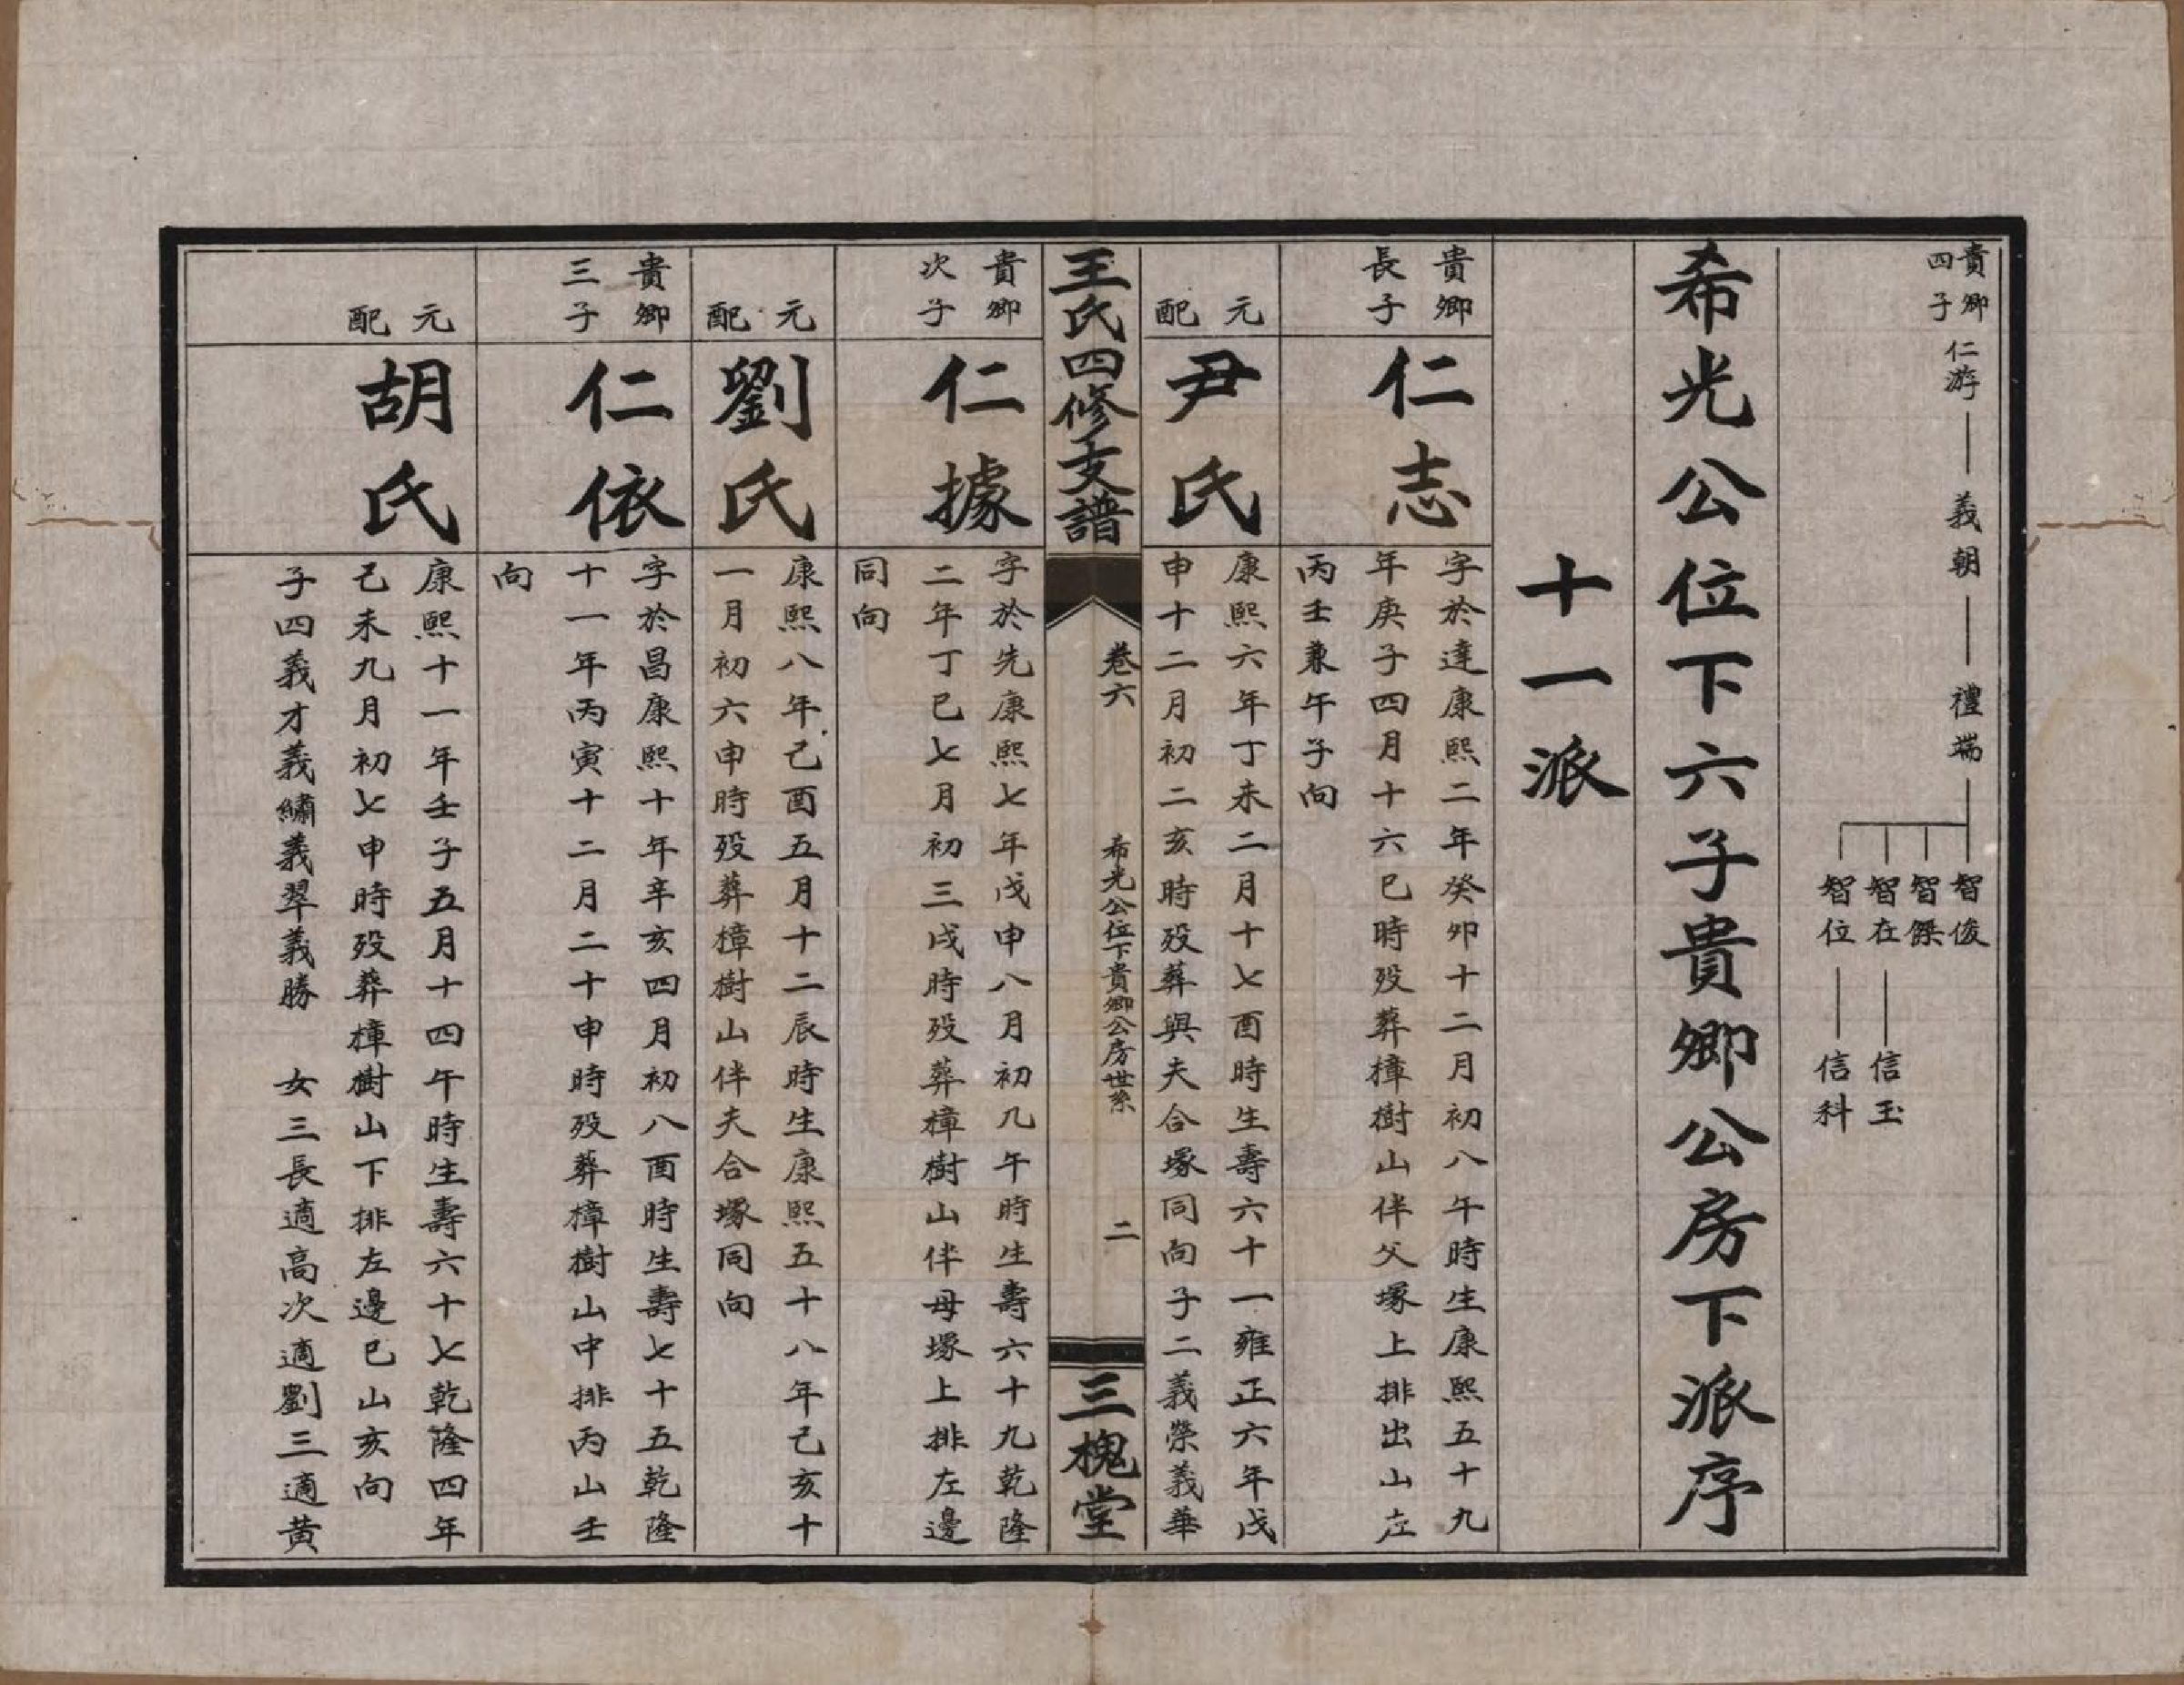 貴卿
四子
仁游
義朝
禮端
智俊
智傑
智在
信玉
智位
信科
希光公位下六子貴卿公房下派序
十一派
貴卿
長子
仁志
字於達康熙二年癸卯十二月初八午時生康熙五十九
年庚子四月十六巳時歿葬樟樹山伴父塚上排出山左
丙壬兼午子向
元
配
尹氏
康熙六年丁未二月十七酉時生壽六十一雍正六年戊
申十二月初二亥時歿葬與夫合塚同向子二義榮義華
王氏四修支譜
卷六
希光公位下貴卿公房世系
二
三槐堂
貴卿
次子
仁據
字於先康熙七年戊申八月初九午時生壽六十九乾隆
二年丁巳七月初三戌時歿葬樟樹山伴母塚上排左邊
同向
元
配
劉氏
康熙八年己酉五月十二辰時生康熙五十八年己亥十
一月初六申時歿葬樟樹山伴夫合塚同向
貴卿
三子
仁依
字於昌康熙十年辛亥四月初八酉時生壽七十五乾隆
十一年丙寅十二月二十申時歿葬樟樹山中排丙山壬
向
元
配
胡氏
康熙十一年壬子五月十四午時生壽六十七乾隆四年
己未九月初七申時歿葬樟樹山下排左邊巳山亥向
子四義才義繡義翠義勝　女三長適高次適劉三適黃